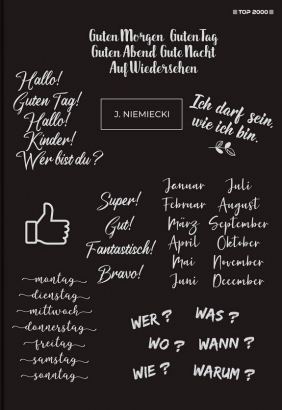 TOP 2000
Guten Morgen Guten Tag
Guten Abend Gute Nacht
Auf Wiedersehen
Hallo!
Guten Tag!
Hallo!
Kinder!
Wer bist du?
J. NIEMIECKI
Ich darf sein,
wie ich bin.
Super!
Gut!
Fantastisch!
Bravo!
Januar Juli
Februar August
März September
April Oktober
Mai November
Juni December
montag
dienstag
mittwoch
donnerstag
freitag
samstag
sonntag
WER? WAS?
WO? WANN?
WIE? WARUM?